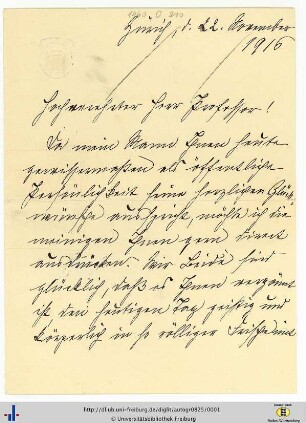 Zürich, d. 22. November
1916
Hochverehrter Herr Professor!
Da mein Mann Ihnen heute
gewissermaßen als öffentliche
Persönlichkeit seine herzlichen Glück-
wünsche ausspricht, möchte ich die
meinigen Ihnen gern direct
ausdrücken. Wir Beide sind
glücklich, daß es Ihnen vergönnt
ist den heutigen Tag geistig und
körperlich in so völliger Frische mit
http://dl.ub.uni-freiburg.de/diglit/autogr0825/0001
© Universitätsbibliothek Freiburg